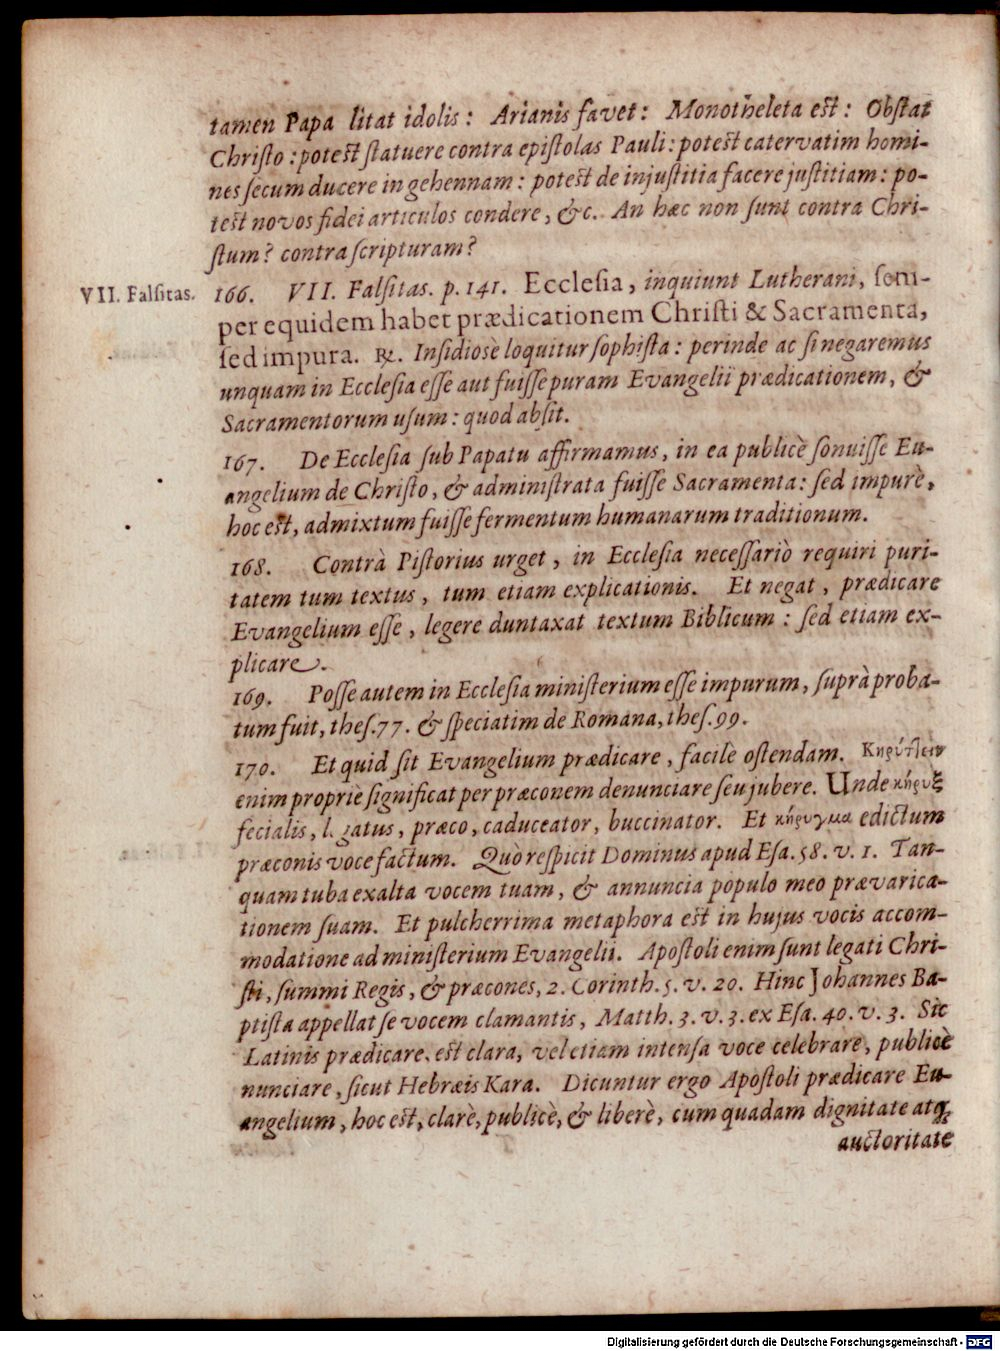 tamen Papa litat idolis: Arianis favet: Monotheleta est: Obstat
Christo: potest statuere contra epistolas Pauli: potest catervatim homi-
nes secum ducere in gehennam: potest de injustitia facere justitiam: po-
test novos fidei articulos condere, &c. An hæc non sunt contra Chri-
stum? contra scripturam?
VII. Falsitas. 166. VII. Falsitas. p. 141. Ecclesia, inquiunt Lutherani, sem-
per equidem habet prædicationem Christi & Sacramenta,
sed impura. ℞. Insidiosè loquitur sophista: perinde ac si negaremus
unquam in Ecclesia esse aut fuisse puram Evangelii prædicationem, &
Sacramentorum usum: quod absit.
167. De Ecclesia sub Papatu affirmamus, in ea publicè sonuisse Eu-
angelium de Christo, & administrata fuisse Sacramenta: sed impurè,
hoc est, admixtum fuisse fermentum humanarum traditionum.
168. Contrà Pistorius urget, in Ecclesia necessariò requiri puri-
tatem tum textus, tum etiam explicationis. Et negat, prædicare
Evangelium esse, legere duntaxat textum Biblicum: sed etiam ex-
plicare.
169. Posse autem in Ecclesia ministerium esse impurum, suprà proba-
tum fuit, thes. 77. & speciatim de Romana, thes. 99.
170. Et quid sit Evangelium prædicare, facilè ostendam. Κηρύτλειν
enim propriè significat per præconem denunciare seu jubere. Unde κήρυξ
fecialis, legatus, præco, caduceator, buccinator. Et κήρυγμα edictum
præconis voce factum. Quò respicit Dominus apud Esa. 58. v. 1. Tan-
quam tuba exalta vocem tuam, & annuncia populo meo prævarica-
tionem suam. Et pulcherrima metaphora est in hujus vocis accom-
modatione ad ministerium Evangelii. Apostoli enim sunt legati Chri-
sti, summi Regis, & præcones, 2. Corinth. 5. v. 20. Hinc Johannes Ba-
ptista appellat se vocem clamantis, Matth. 3. v. 3. ex Esa. 40. v. 3. Sic
Latinis prædicare est clara, vel etiam intensa voce celebrare, publicè
nunciare, sicut Hebræis Kara. Dicuntur ergo Apostoli prædicare Eu-
angelium, hoc est, clarè, publicè, & liberè, cum quadam dignitate atq;
auctoritate
Digitalisierung gefördert durch die Deutsche Forschungsgemeinschaft - DFG